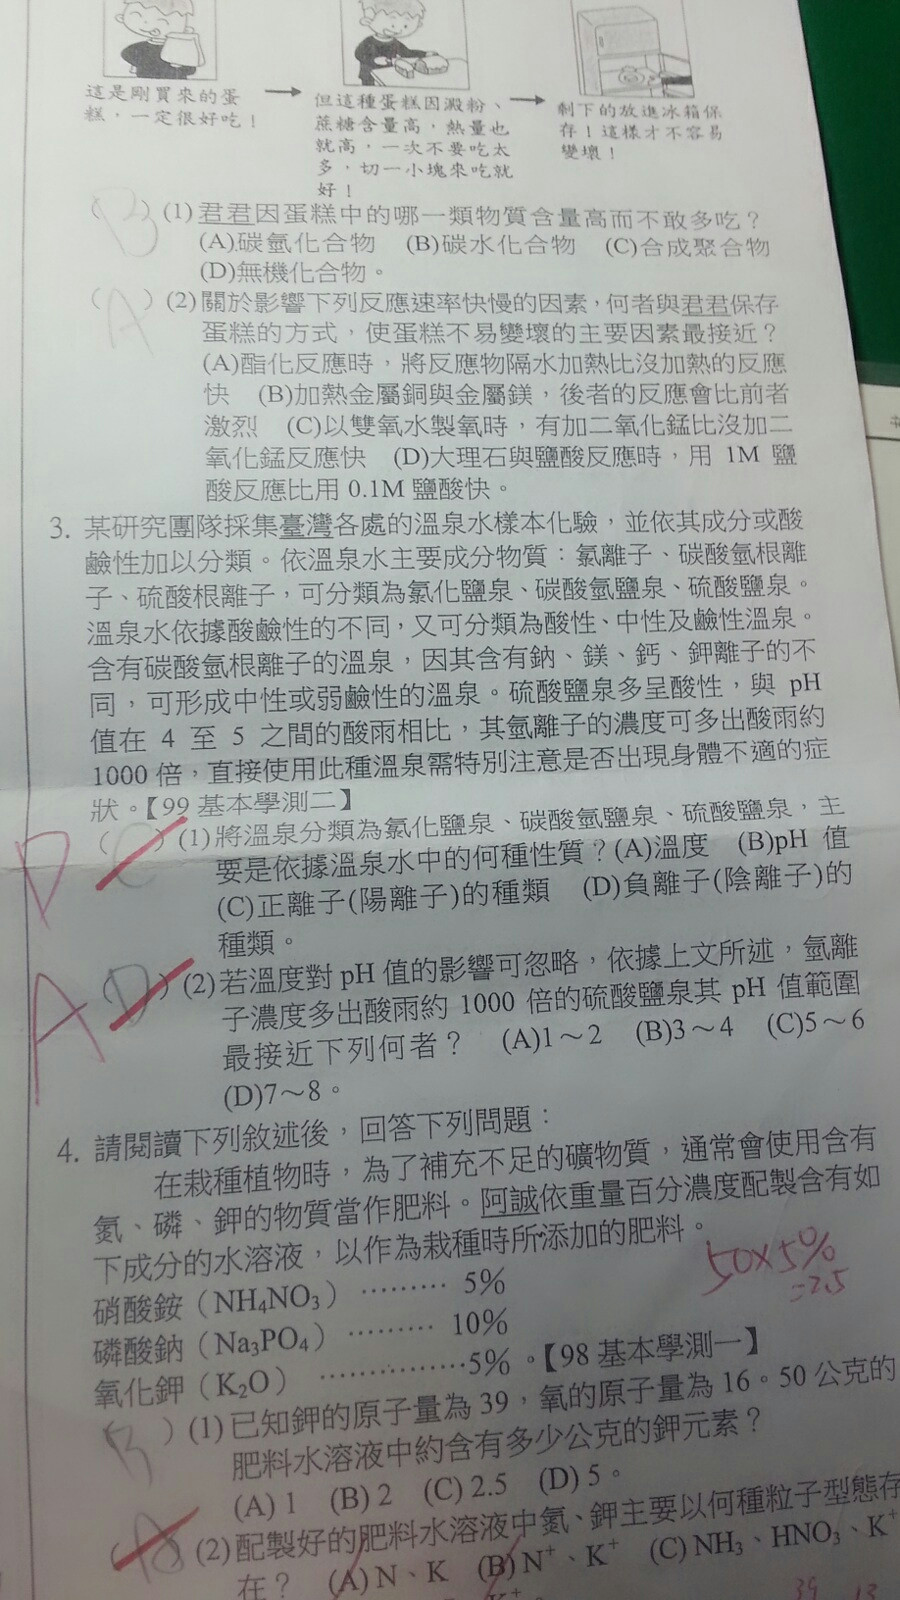 這是剛買來的蛋
糕，一定很好吃！
但這種蛋糕因澱粉、
蔗糖含量高，熱量也
就高，一次不要吃太
多，切一小塊來吃就
好！
剩下的放進冰箱保
存！這樣才不容易
變壞！
(B) (1) 君君因蛋糕中的哪一類物質含量高而不敢多吃？
(A)碳氫化合物 (B)碳水化合物 (C)合成聚合物
(D)無機化合物。
(A) (2) 關於影響下列反應速率快慢的因素，何者與君君保存
蛋糕的方式，使蛋糕不易變壞的主要因素最接近？
(A)酯化反應時，將反應物隔水加熱比沒加熱的反應
快 (B)加熱金屬銅與金屬鎂，後者的反應會比前者
激烈 (C)以雙氧水製氧時，有加二氧化錳比沒加二
氧化錳反應快 (D)大理石與鹽酸反應時，用 1M 鹽
酸反應比用 0.1M 鹽酸快。
3. 某研究團隊採集臺灣各處的溫泉水樣本化驗，並依其成分或酸
鹼性加以分類。依溫泉水主要成分物質：氯離子、碳酸氫根離
子、硫酸根離子，可分類為氯化鹽泉、碳酸氫鹽泉、硫酸鹽泉。
溫泉水依據酸鹼性的不同，又可分類為酸性、中性及鹼性溫泉。
含有碳酸氫根離子的溫泉，因其含有鈉、鎂、鈣、鉀離子的不
同，可形成中性或弱鹼性的溫泉。硫酸鹽泉多呈酸性，與 pH
值在 4 至 5 之間的酸雨相比，其氫離子的濃度可多出酸雨約
1000 倍，直接使用此種溫泉需特別注意是否出現身體不適的症
狀。【99 基本學測二】
D (C) (1) 將溫泉分類為氯化鹽泉、碳酸氫鹽泉、硫酸鹽泉，主
要是依據溫泉水中的何種性質？(A)溫度 (B)pH 值
(C)正離子(陽離子)的種類 (D)負離子(陰離子)的
種類。
A (D) (2) 若溫度對 pH 值的影響可忽略，依據上文所述，氫離
子濃度多出酸雨約 1000 倍的硫酸鹽泉其 pH 值範圍
最接近下列何者？ (A)1～2 (B)3～4 (C)5～6
(D)7～8。
4. 請閱讀下列敘述後，回答下列問題：
在栽種植物時，為了補充不足的礦物質，通常會使用含有
氮、磷、鉀的物質當作肥料。阿誠依重量百分濃度配製含有如
下成分的水溶液，以作為栽種時所添加的肥料。
50×5%
=2.5
硝酸銨（NH₄NO₃）……… 5%
磷酸鈉（Na₃PO₄）……… 10%
氧化鉀（K₂O）……………5%。【98 基本學測一】
(B) (1) 已知鉀的原子量為 39，氧的原子量為 16。50 公克的
肥料水溶液中約含有多少公克的鉀元素？
(A) 1 (B) 2 (C) 2.5 (D) 5。
(2) 配製好的肥料水溶液中氮、鉀主要以何種粒子型態存
在？ (A) N、K (B) N⁺、K⁺ (C) NH₃、HNO₃、K⁺